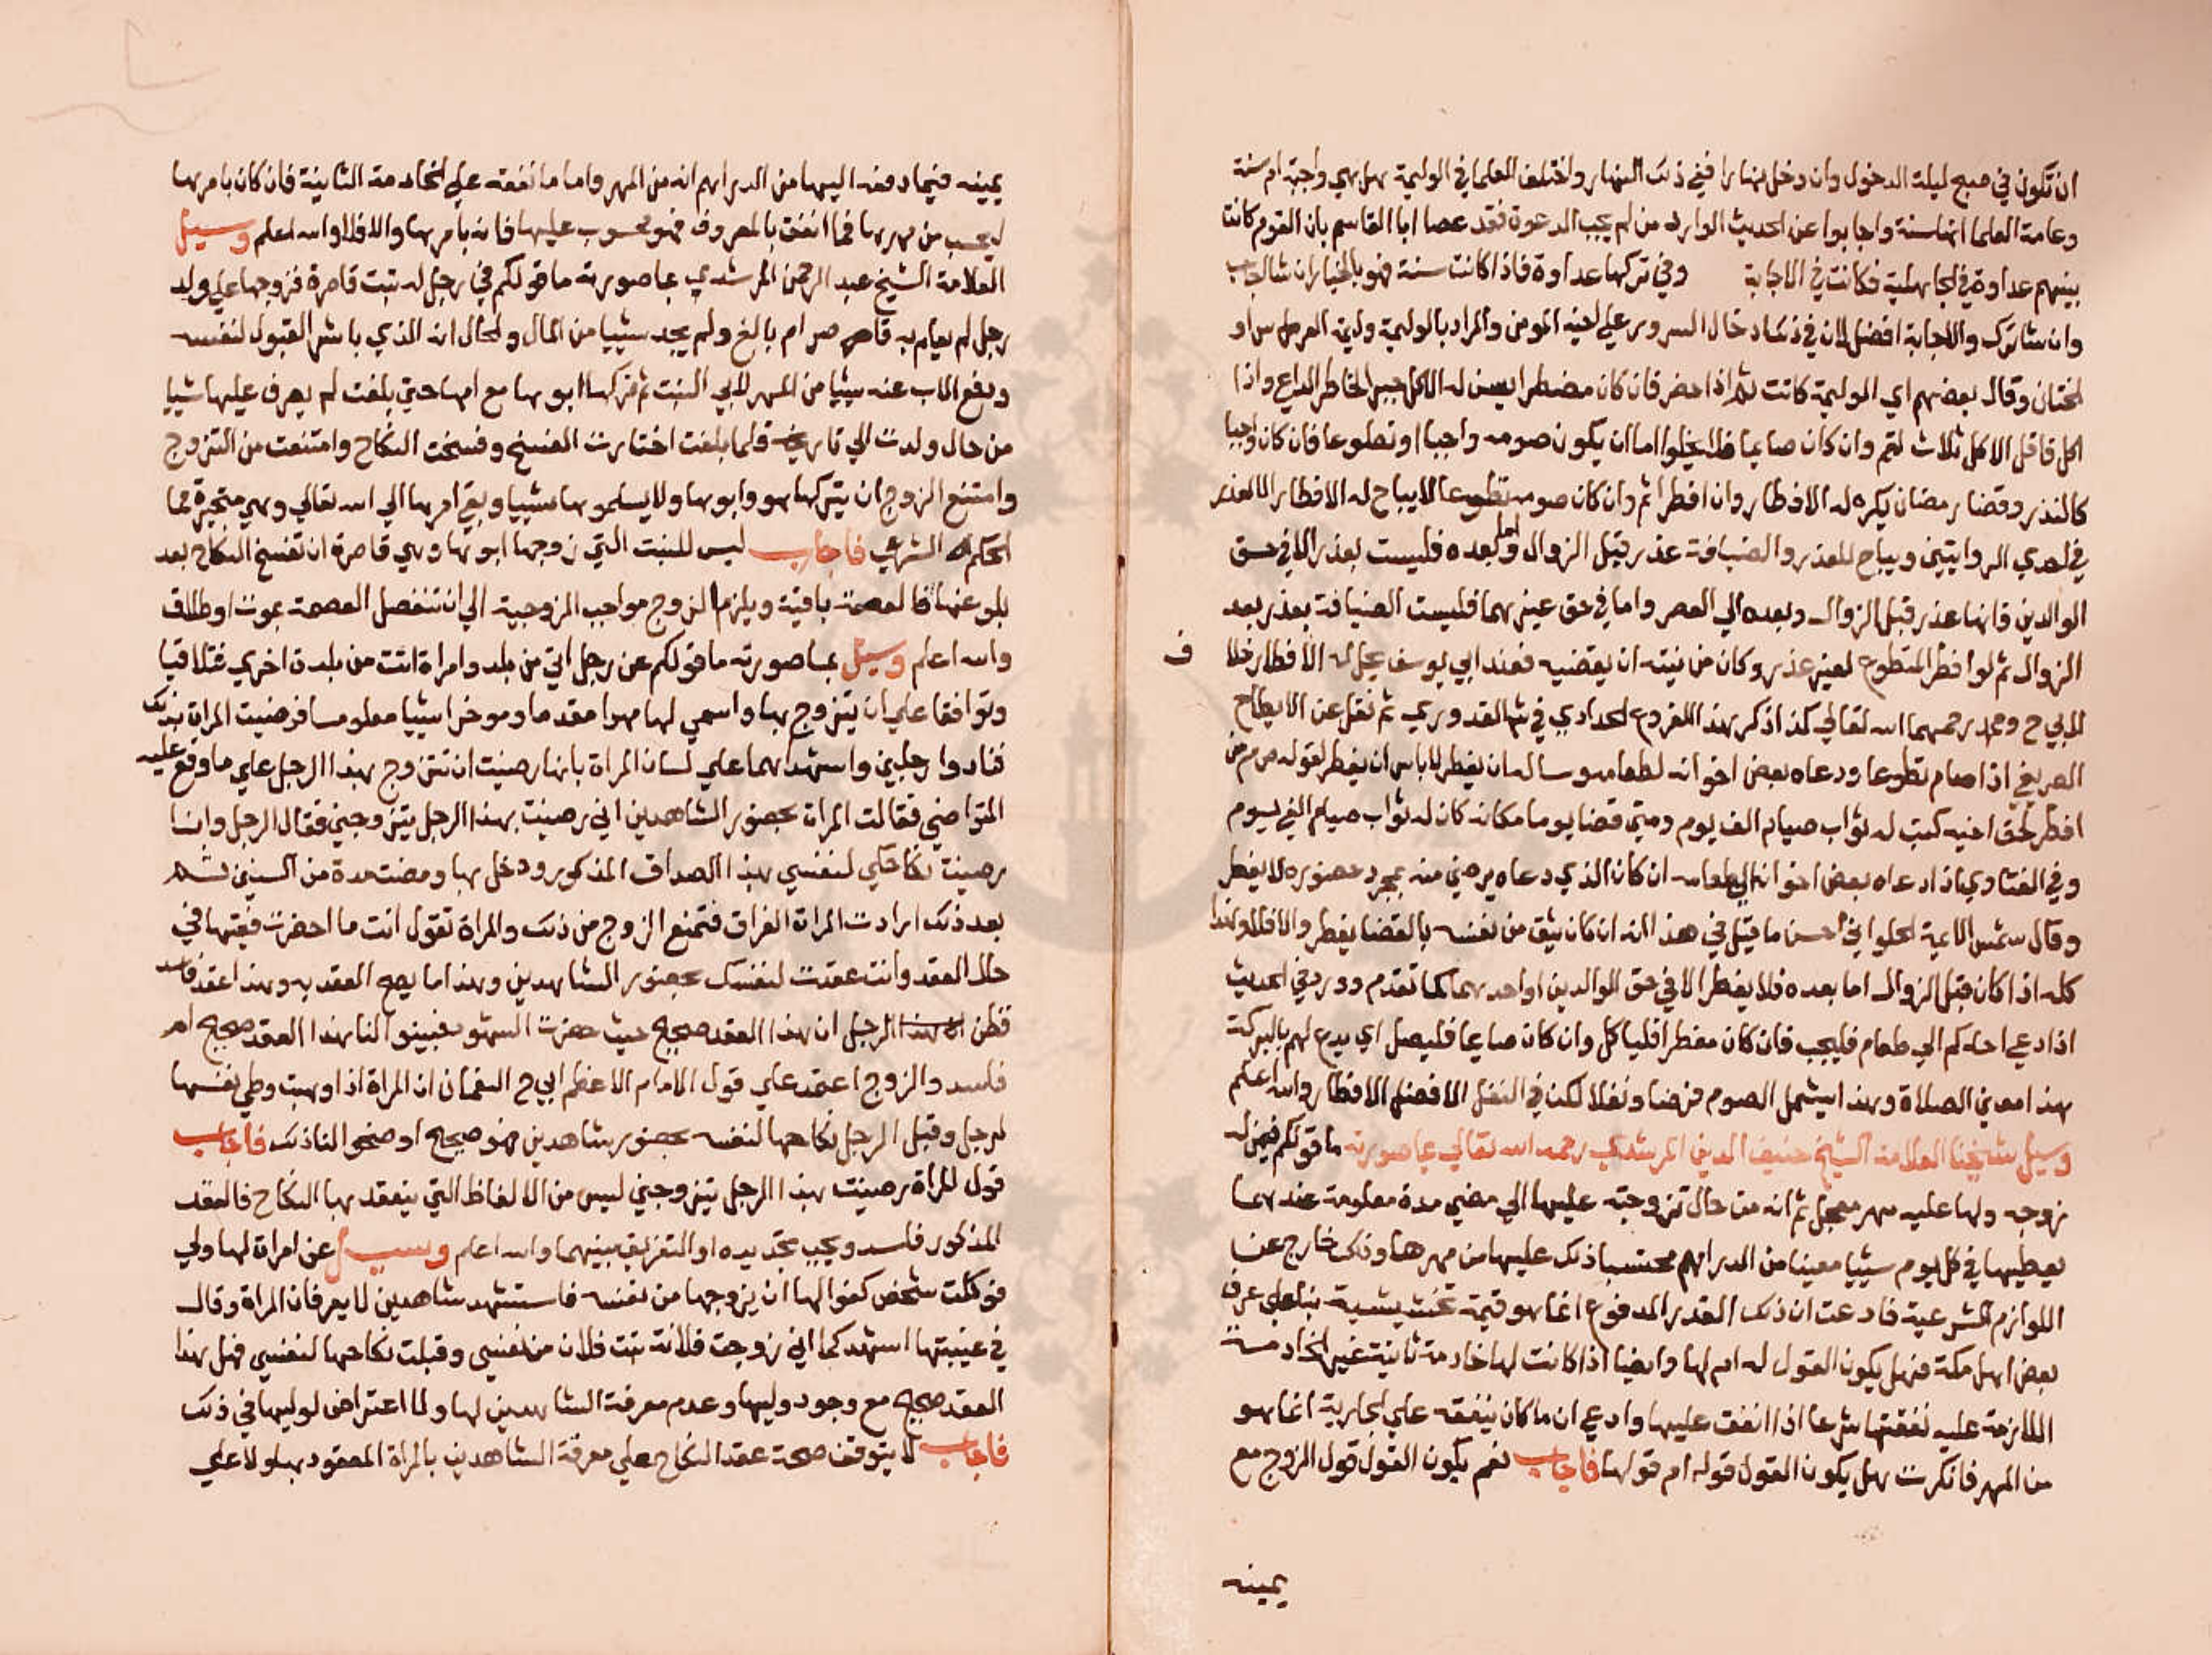 ان تكون في صبح ليلة الدخول وان دخل نهارا ففي ذلك النهار واختلف العلما في الوليمة هل هي واجبة ام سنة
وعامة العلما انها سنة واجابوا عن الحديث الوارد من لم يجب الدعوة فقد عصا ابا القاسم بان القوم كانت
بينهم عداوة في الجاهلية فكانت في الاجابة وفي تركها عداوة فاذا كانت سنة فهو بالخيار ان شا اجاب
وان شا ترك والاجابة افضل لان في ذلك ادخال السرور علي اخيه المومن والمراد بالوليمة وليمة العرس او
الختان وقال بعضهم اي الوليمة كانت ثم اذا حضر فان كان مضطرا يسن له الاكل جبر الخاطر الداع واذا
اكل فاقل الاكل ثلاث لقم وان كان صايما فلا يخلوا اما ان يكون صومه واجبا او تطوعا فان كان واجبا
كالنذر وقضا رمضان يكره له الافطار وان افطر اثم وان كان صومه تطوعا لا يباح له الافطار الا لعذر
في احدي الروايتين ويباح للعذر والضيافة عذر قبل الزوال واما بعده فليست بعذر الا في حق
الوالدين فانها عذر قبل الزوال وبعده الي العصر واما في حق غيرهما فليست الضيافة بعذر بعد
الزوال ثم لو افطر المتطوع لغير عذر وكان من نيته ان يقضيه فعند ابي يوسف يحل له الافطار خلافا
لابي ح ومحمد رحمهما الله تعالي كذا ذكر هذا الفروع الحدادي في شرح القدوري ثم نقل عن الايضاح
الصريفي اذا صام تطوعا ودعاه بعض اخوانه لطعامه وساله ان يفطر لا باس ان يفطر لقوله ص م من
افطر لحق اخيه كتب له ثواب صيام الف يوم ومتي قضا يوما مكانه كان له ثواب صيام الفي يوم
وفي الفتاوي اذا دعاه بعض اخوانه الي طعامه ان كان الذي دعاه يرضي منه بمجرد حضوره لا يفطر
وقال شمس الايمة الحلواني احسن ما قيل في هذا انه ان كان يثق من نفسه بالقضا يفطر والا فلا وهذا
كله اذا كان قبل الزوال اما بعده فلا يفطر الا في حق الوالدين او احدهما كما تقدم وورد في الحديث
اذا دعي احدكم الي طعام فليجب فان كان مفطرا فلياكل وان كان صايما فليصل اي يدع لهم بالبركة
هذا معني الصلاة وهذا يشمل الصوم فرضا ونفلا لكن في النفل الافضل الافطار والله اعلم
وسيل شيخنا العلامة الشيخ حنيف الدين المرشدي رحمه الله تعالي بما صورته ما قولكم فيمن له
زوجه ولها عليه مهر معجل ثم انه من حال تزوجته عليها الي مضي مدة معلومة عندهما
يعطيها في كل يوم شييا معينا من الدراهم محتسبا ذلك عليها من مهرها وذلك خارج عن
اللوازم الشرعية فادعت ان ذلك القدر المدفوع انما هو قيمة بناء علي عرف
بعض اهل مكة فهل يكون القول له ام لها وايضا اذا كانت لها خادمة ثانية غير الخادمة
اللازمة عليه نفقتها شرعا اذا انفق عليها وادعي ان ما كان ينفقه علي الجارية انما هو
من المهر فانكرت هل يكون القول قوله ام قولها فاجاب نعم يكون القول قول الزوج مع
يمينه
ف
يمينه فيما دفعه اليها من الدراهم انه من المهر واما ما نفقه علي الخادمة الثانية فان كان بامرها
ليحسب من مهرها فما انفق بالمعروف فهو محسوب عليها فانه بامرها والا فلا والله اعلم وسيل
العلامة الشيخ عبد الرحمن المرشدي بما صورته ما قولكم في رجل له بنت قاصرة فزوجها علي ولد
رجل لم يعلم به قاصر ام بالغ ولم يجد شييا من المال والحال ان الذي باشر القبول لنفسه
ودفع الاب عنه شييا من المهر لابي البنت ثم تركها ابوها مع امها حتي بلغت لم يصرف عليها شييا
من حال ولدت الي تاريخه فلما بلغت اختارت الفسخ وفسخت النكاح وامتنعت من التزوج
وامتنع الزوج ان يتركها هو وابوها ولا يسلموها شييا وبقي امرها الي الله تعالي وهي متحيرة فما
الحكم الشرعي فاجاب ليس للبنت التي زوجها ابوها وهي قاصرة ان تفسخ النكاح بعد
بلوغها فالعصمة باقية ويلزم الزوج مواجب الزوجية الي ان تنفصل العصمة بموت او طلاق
والله اعلم وسيل بما صورته ما قولكم عن رجل اتي من بلد وامراة اتت من بلدة اخري فتلاقيا
وتوافقا علي ان يتزوج بها واسمي لها مهرا مقدما وموخرا شييا معلوما فرضيت المراة بذلك
فنادوا رجلين واشهداهما علي لسان المراة بانها رضيت ان تتزوج بهذا الرجل علي ما وقع عليه
التراضي فقالت المراة بحضور الشاهدين اني رضيت بهذا الرجل يتزوجني فقال الرجل وانا
رضيت نكاحك لنفسي بهذا الصداق المذكور ودخل بها ومضت مدة من السنين ثم
بعد ذلك ارادت المراة الفراق فتمنع الزوج من ذلك والمراة تقول انت ما احضرت فقيها في
حال العقد وانت عقدت لنفسك بحضور الشاهدين وهذا ما يصح العقد به وهذا عقد فاسد
فظن الرجل ان هذا العقد صحيح حيث حضرت الشهود فبينوا لنا هذا العقد صحيح ام
فاسد والزوج اعتمد علي قول الامام الاعظم ابي ح النعمان ان المراة اذا وهبت وطي نفسها
لرجل وقبل الرجل نكاحها لنفسه بحضور شاهدين فهو صحيح اوضحوا لنا ذلك فاجاب
قول المراة رضيت بهذا الرجل يتزوجني ليس من الالفاظ التي ينعقد بها النكاح فالعقد
المذكور فاسد ويجب تجديده او التفريق بينهما والله اعلم وسيل عن امراة لها ولي
فوكلت شخص كفوا لها ان يزوجها من نفسه فاستشهد شاهدين لا يعرفان المراة وقال
في غيبتها اشهدكما اني زوجت فلانة بنت فلان من نفسي وقبلت نكاحها لنفسي فهل هذا
العقد صحيح مع وجود وليها وعدم معرفة الشاهدين لها ولا اعتراض لوليها في ذلك
فاجاب لا يتوقف صحة عقد النكاح علي معرفة الشاهدين بالمراة المعقود بها ولا علي